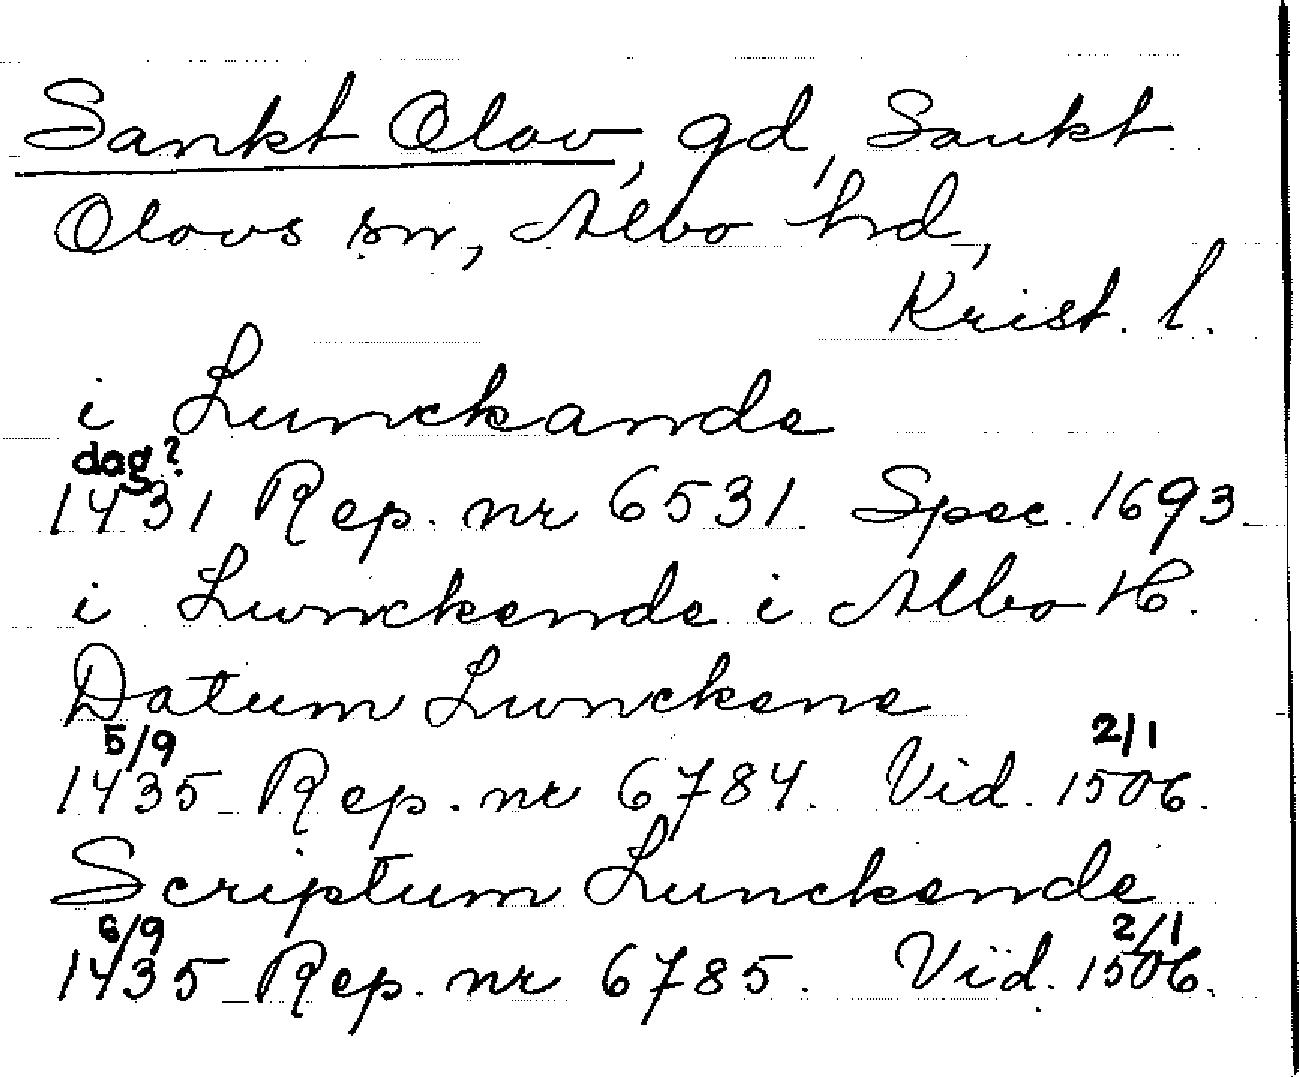 Sankt Olov, gd, Sankt
Olovs sn, Albo hd,
Krist. l.
i Lunckande
dag?
1431 Rep. nr 6531. Spec. 1693.
i Lunckende i Albo H.
Datum Lunckene
5/9 2/1
1435 Rep. nr 6784. Vid. 1506.
Scriptum Lunckende
6/9 2/1
1435 Rep. nr 6785. Vid. 1506.